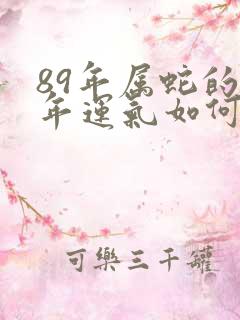 89年属蛇的
年運氣如何
可樂三千罐